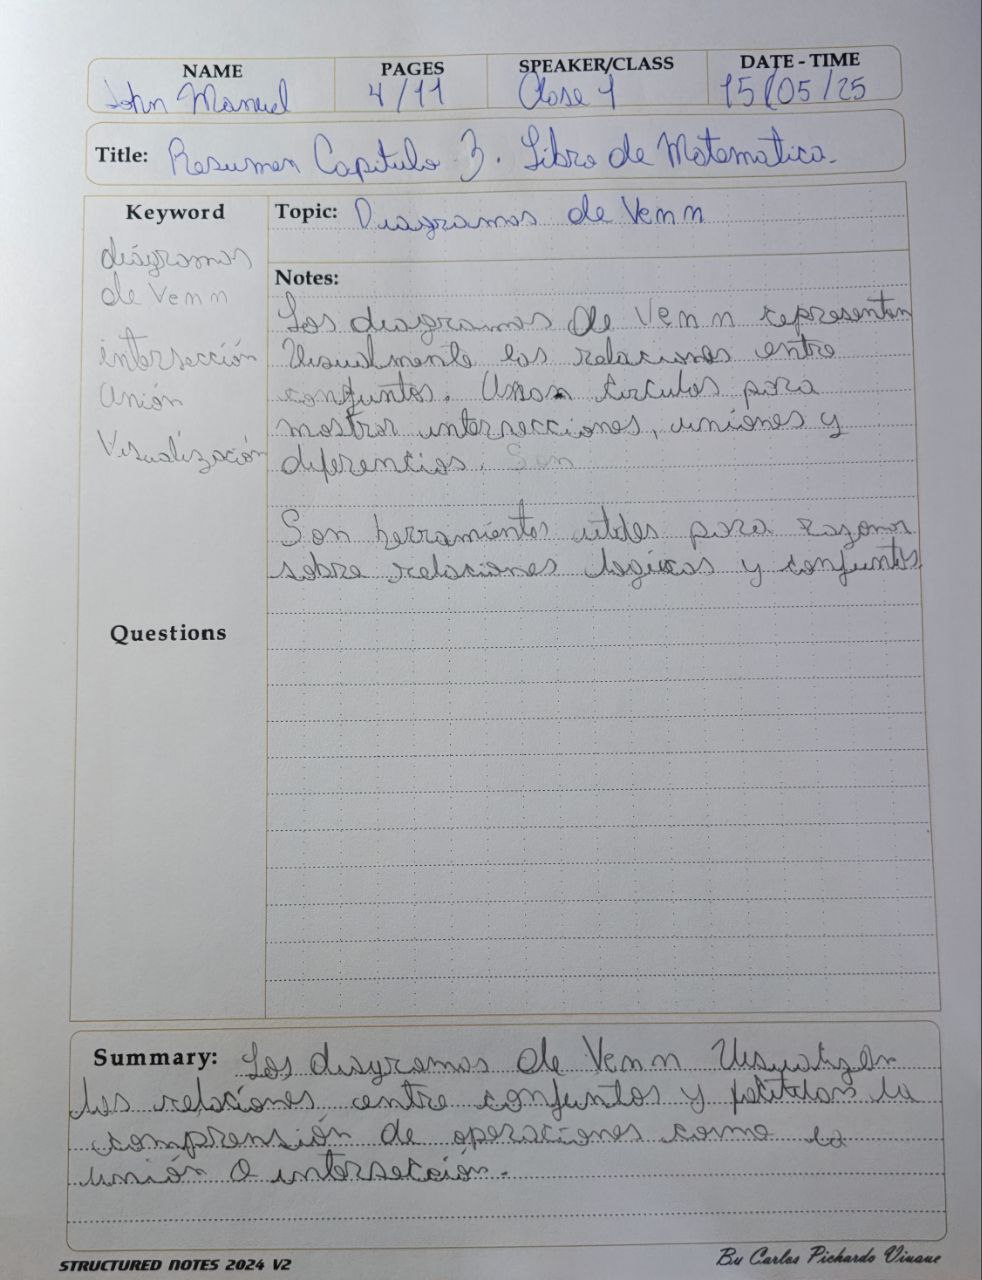 NAME PAGES SPEAKER/CLASS DATE - TIME
John Manuel 4/11 Clase 1 15/05/25
Title: Resumen Capitulo 3. Libro de Matematica.
Keyword
diágramas
de Venn
intersección
Unión
Visualización
Questions
Topic: Diagramas de Venn
Notes:
Los diagramas de Venn representan
Visualmente las relaciones entre
conjuntos. Usan circulos para
mostrar intersecciones, uniones y
diferencias. Son
Son herramientas utiles para razonar
sobre relaciones logicas y conjuntos
Summary: Los diagramas de Venn Visualizan
las relaciones entre conjuntos y facilitan la
comprensión de operaciones como la
unión o intersección.
STRUCTURED NOTES 2024 V2
By Carlos Pichardo Viuque